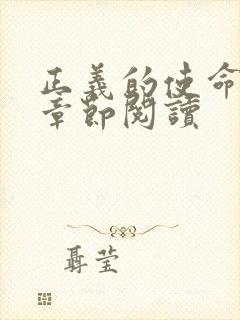 正義的使命
章節閱讀
聶瑩